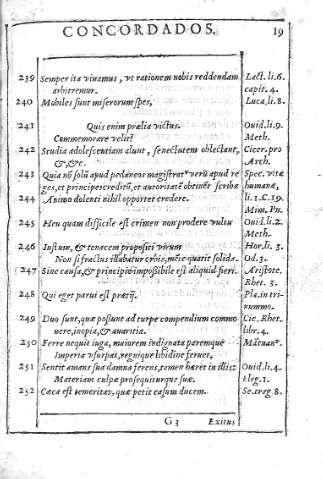 CONCORDADOS. 19
239 Semper ita vivamus, vt rationem nobis reddendam Lact. li. 6.
arbitremur. capit. 4.
240 Mobiles sunt miserorum spes, Luca, li. 8.
241 Quis enim prælia victus. Ouid. li. 9.
Commemorare velit? Meth.
242 Studia adolescentiam alunt, senectutem oblectant, Cicer. pro
&, &c. Arch.
243 Quia nõ solũ apud pedaneos verũ apud re Spec. vitæ
ges, et principes credirũ, et autoritatẽ obtinet scriba humanæ,
244 Animo dolenti nihil opportet credere. li. 1. C. 19.
Mim. Pu.
245 Heu quam difficile est crimen non prodere vultu Ouid. li. 2.
Meth.
246 Iustum, & tenacem propositi virum Hor. li. 3.
Non si fractus illabatur orbis, quatit solida. Od. 3.
247 Sine causa, & principio impossibile est aliquid fieri. Aristote.
Rhet. 3.
248 Qui eget parui est pretij. Pla. in tri-
nummo.
249 Duo sunt, quæ possunt ad turpe compendium commo Cic. Rhet.
uere, inopia, & auaritia. libr. 4.
250 Ferre nequit iuga, maiorem indignata paremque Mãtuanº.
Imperia vsurpat, regnique libidine feruet,
251 Sentit amans sua damna ferens, tamen hæret in illis: Ouid. li. 4.
Materiam culpæ prosequiturque suæ. Eleg. 1.
252 Cæca est temeritas, quæ petit casum ducem. Se. trag. 8.
G 3 Exitus